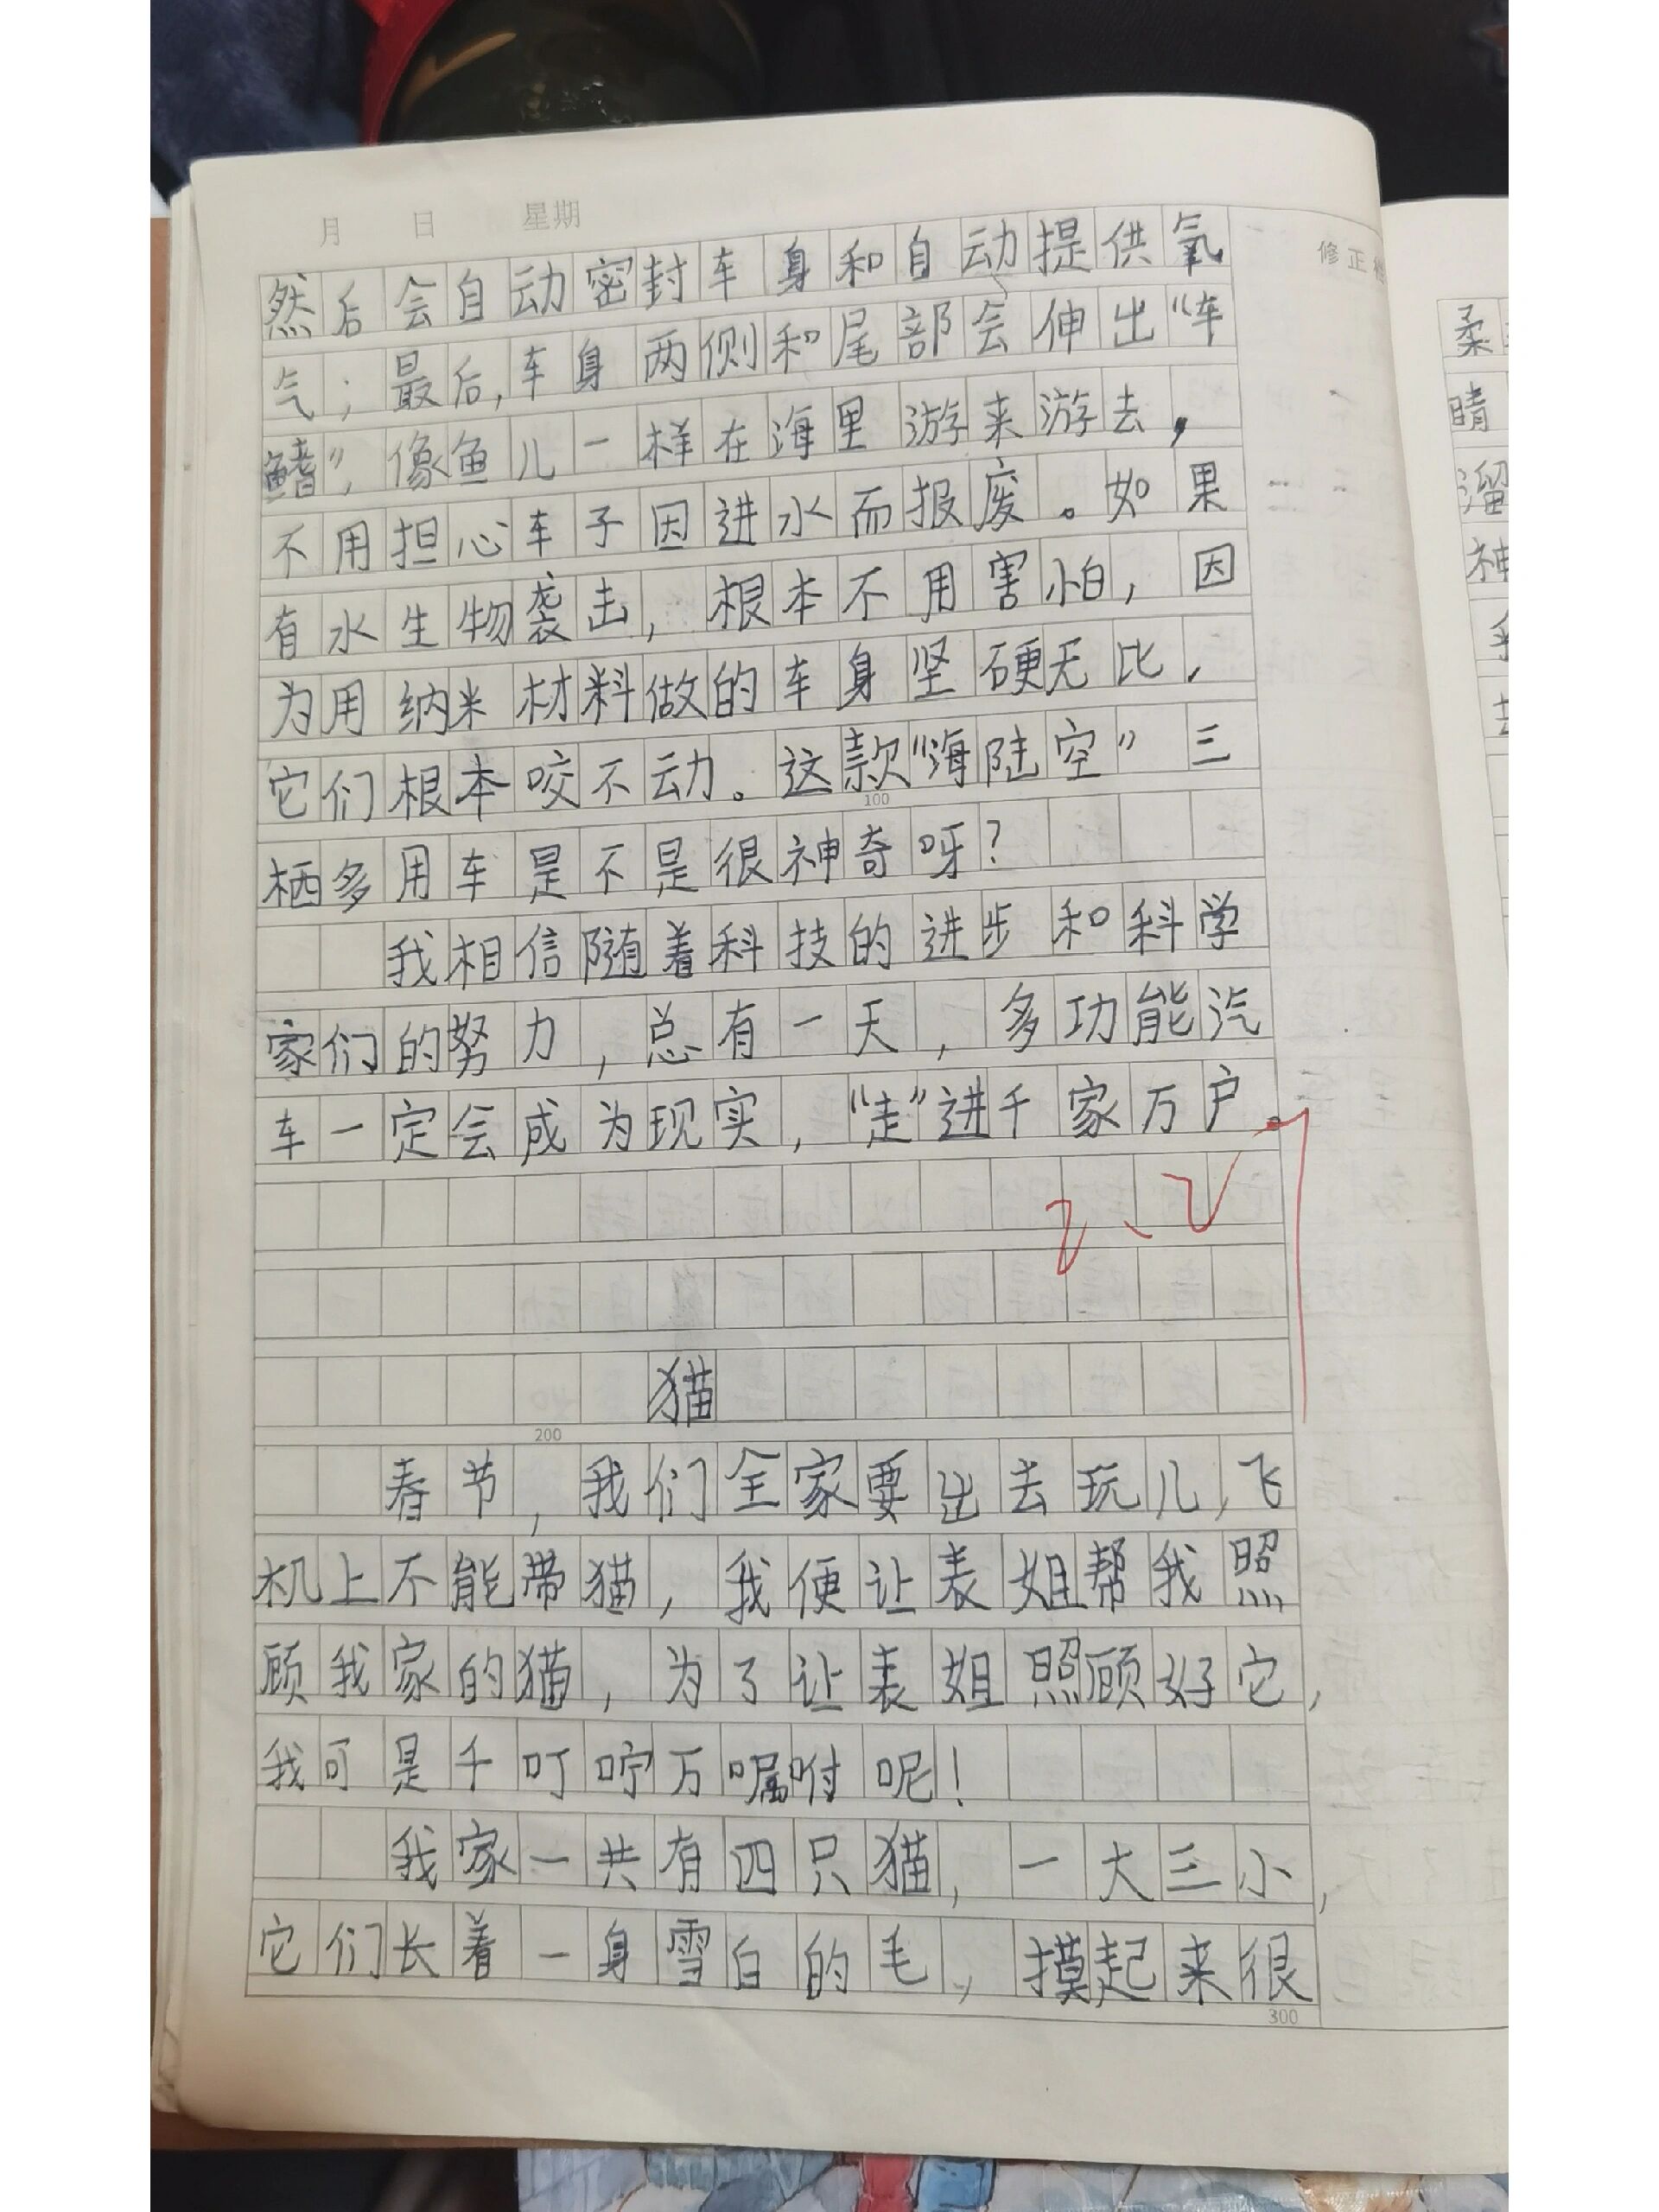 月 日 星期
修正
然后会自动密封车身和自动提供氧
气；最后,车身两侧和尾部会伸出“车
鳍”，像鱼儿一样在海里游来游去，
不用担心车子因进水而报废。如果
有水生物袭击，根本不用害怕，因
为用纳米材料做的车身坚硬无比，
它们根本咬不动。这款“海陆空”三
栖多用车是不是很神奇呀？
100
我相信随着科技的进步和科学
家们的努力，总有一天，多功能汽
车一定会成为现实，“走”进千家万户。
2、
猫
200
春节，我们全家要出去玩儿，飞
机上不能带猫，我便让表姐帮我照
顾我家的猫，为了让表姐照顾好它，
我可是千叮咛万嘱咐呢！
我家一共有四只猫，一大三小，
它们长着一身雪白的毛，摸起来很
300
柔
睛
溜
神